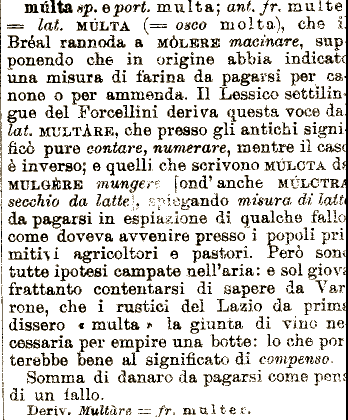 múlta sp. e port. multa; ant. fr. multe
= lat. MÚLTA (= osco molta), che i
Bréal rannoda a MÒLERE macinare, sup
ponendo che in origine abbia indicato
una misura di farina da pagarsi per ca
none o per ammenda. Il Lessico settilin
gue del Forcellini deriva questa voce da
lat. MULTÀRE, che presso gli antichi signi
ficò pure contare, numerare, mentre il caso
è inverso; e quelli che scrivono MÚLCTA da
MULGÈRE mungere [ond'anche MÚLCTRA
secchio da latte], spiegando misura di latte
da pagarsi in espiazione di qualche fallo
come doveva avvenire presso i popoli pri
mitivi agricoltori e pastori. Però son
tutte ipotesi campate nell'aria: e sol giova
frattanto contentarsi di sapere da Var
rone, che i rustici del Lazio da prima
dissero « multa » la giunta di vino ne
cessaria per empire una botte: lo che por
terebbe bene al significato di compenso.
Somma di danaro da pagarsi come pena
di un fallo.
Deriv. Multàre = fr. multer.